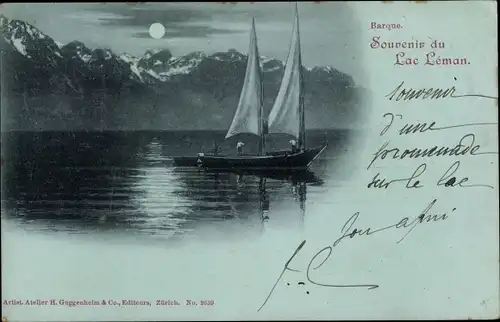 Barque.
Souvenir du
Lac Léman.
Souvenir
d'une
promenade
sur le lac
Ton
Artist. Atelier H. Guggenheim & Co., Editeurs, Zürich. No. 1639